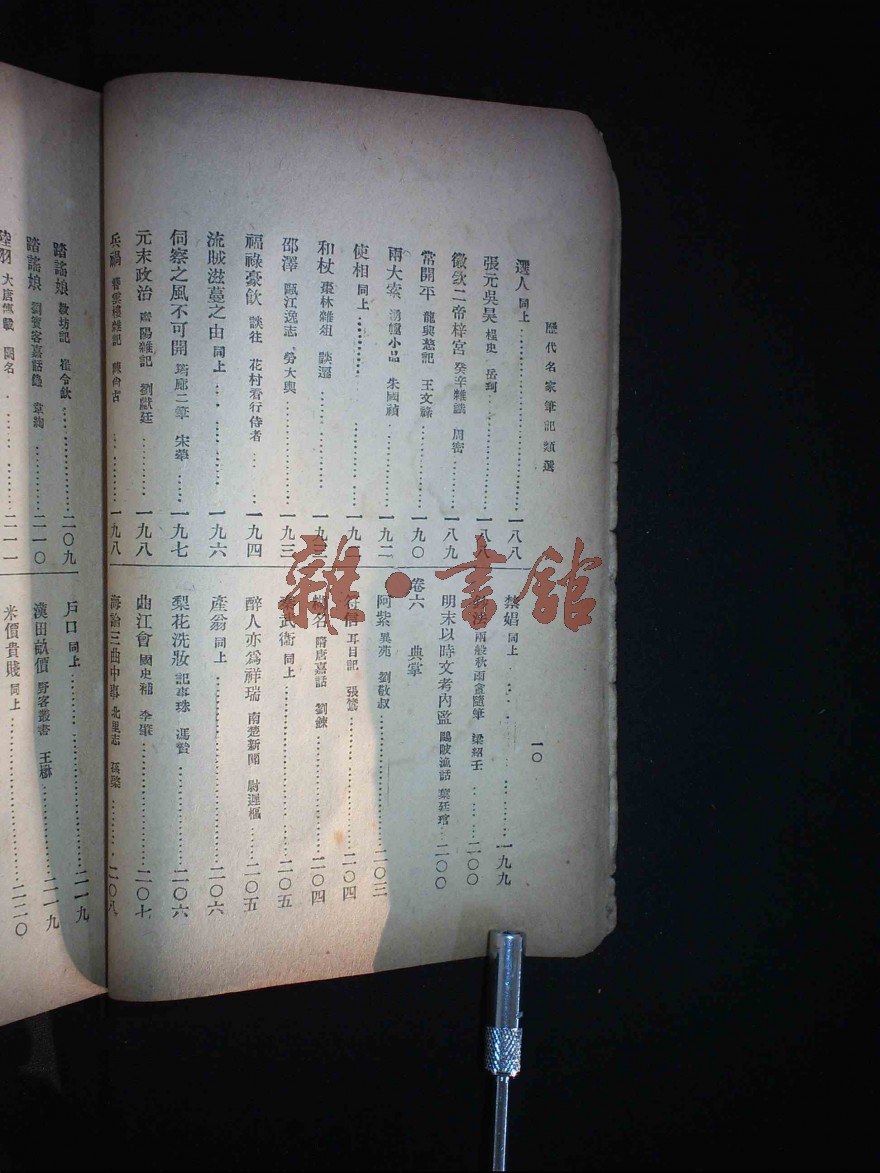 歷代名家筆記類選
選人 同上……一八八
張元吳昊 桯史 岳珂……一八八
徽欽二帝梓宮 癸辛雜識 周密……一八九
常開平 龍興慈記 王文祿……一九〇
兩大索 湧幢小品 朱國禎……一九二
使相 同上……一九二
和杖 棗林雜俎 談遷……一九三
邵澤 甌江逸志 勞大與……一九三
福祿豪飲 談往 花村看行侍者……一九四
流賊滋蔓之由 同上……一九六
伺察之風不可開 筠廊二筆 宋犖……一九七
元末政治 廣陽雜記 劉獻廷……一九八
兵禍 陳尙古……一九八
一〇
禁娼 同上……一九九
兩般秋雨盦隨筆 梁紹壬……二〇〇
明末以時文考內監 鷗陂漁話 葉廷琯……二〇〇
卷六 典掌
阿紫 異苑 劉敬叔……二〇三
耳目記 張鷟……二〇四
名 隋唐嘉話 劉餗……二〇四
武衛 同上……二〇五
醉人亦爲祥瑞 南楚新聞 尉遲樞……二〇五
產翁 同上……二〇六
梨花洗妝 記事珠 馮贄……二〇六
曲江會 國史補 李肇……二〇七
海論三曲中事 北里志 孫棨……二〇八
踏謠娘 敎坊記 崔令欽……二〇九
踏謠娘 劉賓客嘉話錄 韋絢……二一〇
陸羽 大唐傳載 闕名……二一一
戶口 同上……二一九
漢田畝價 野客叢書 王楙……二一九
米價貴賤 同上……二二〇
雜·書館